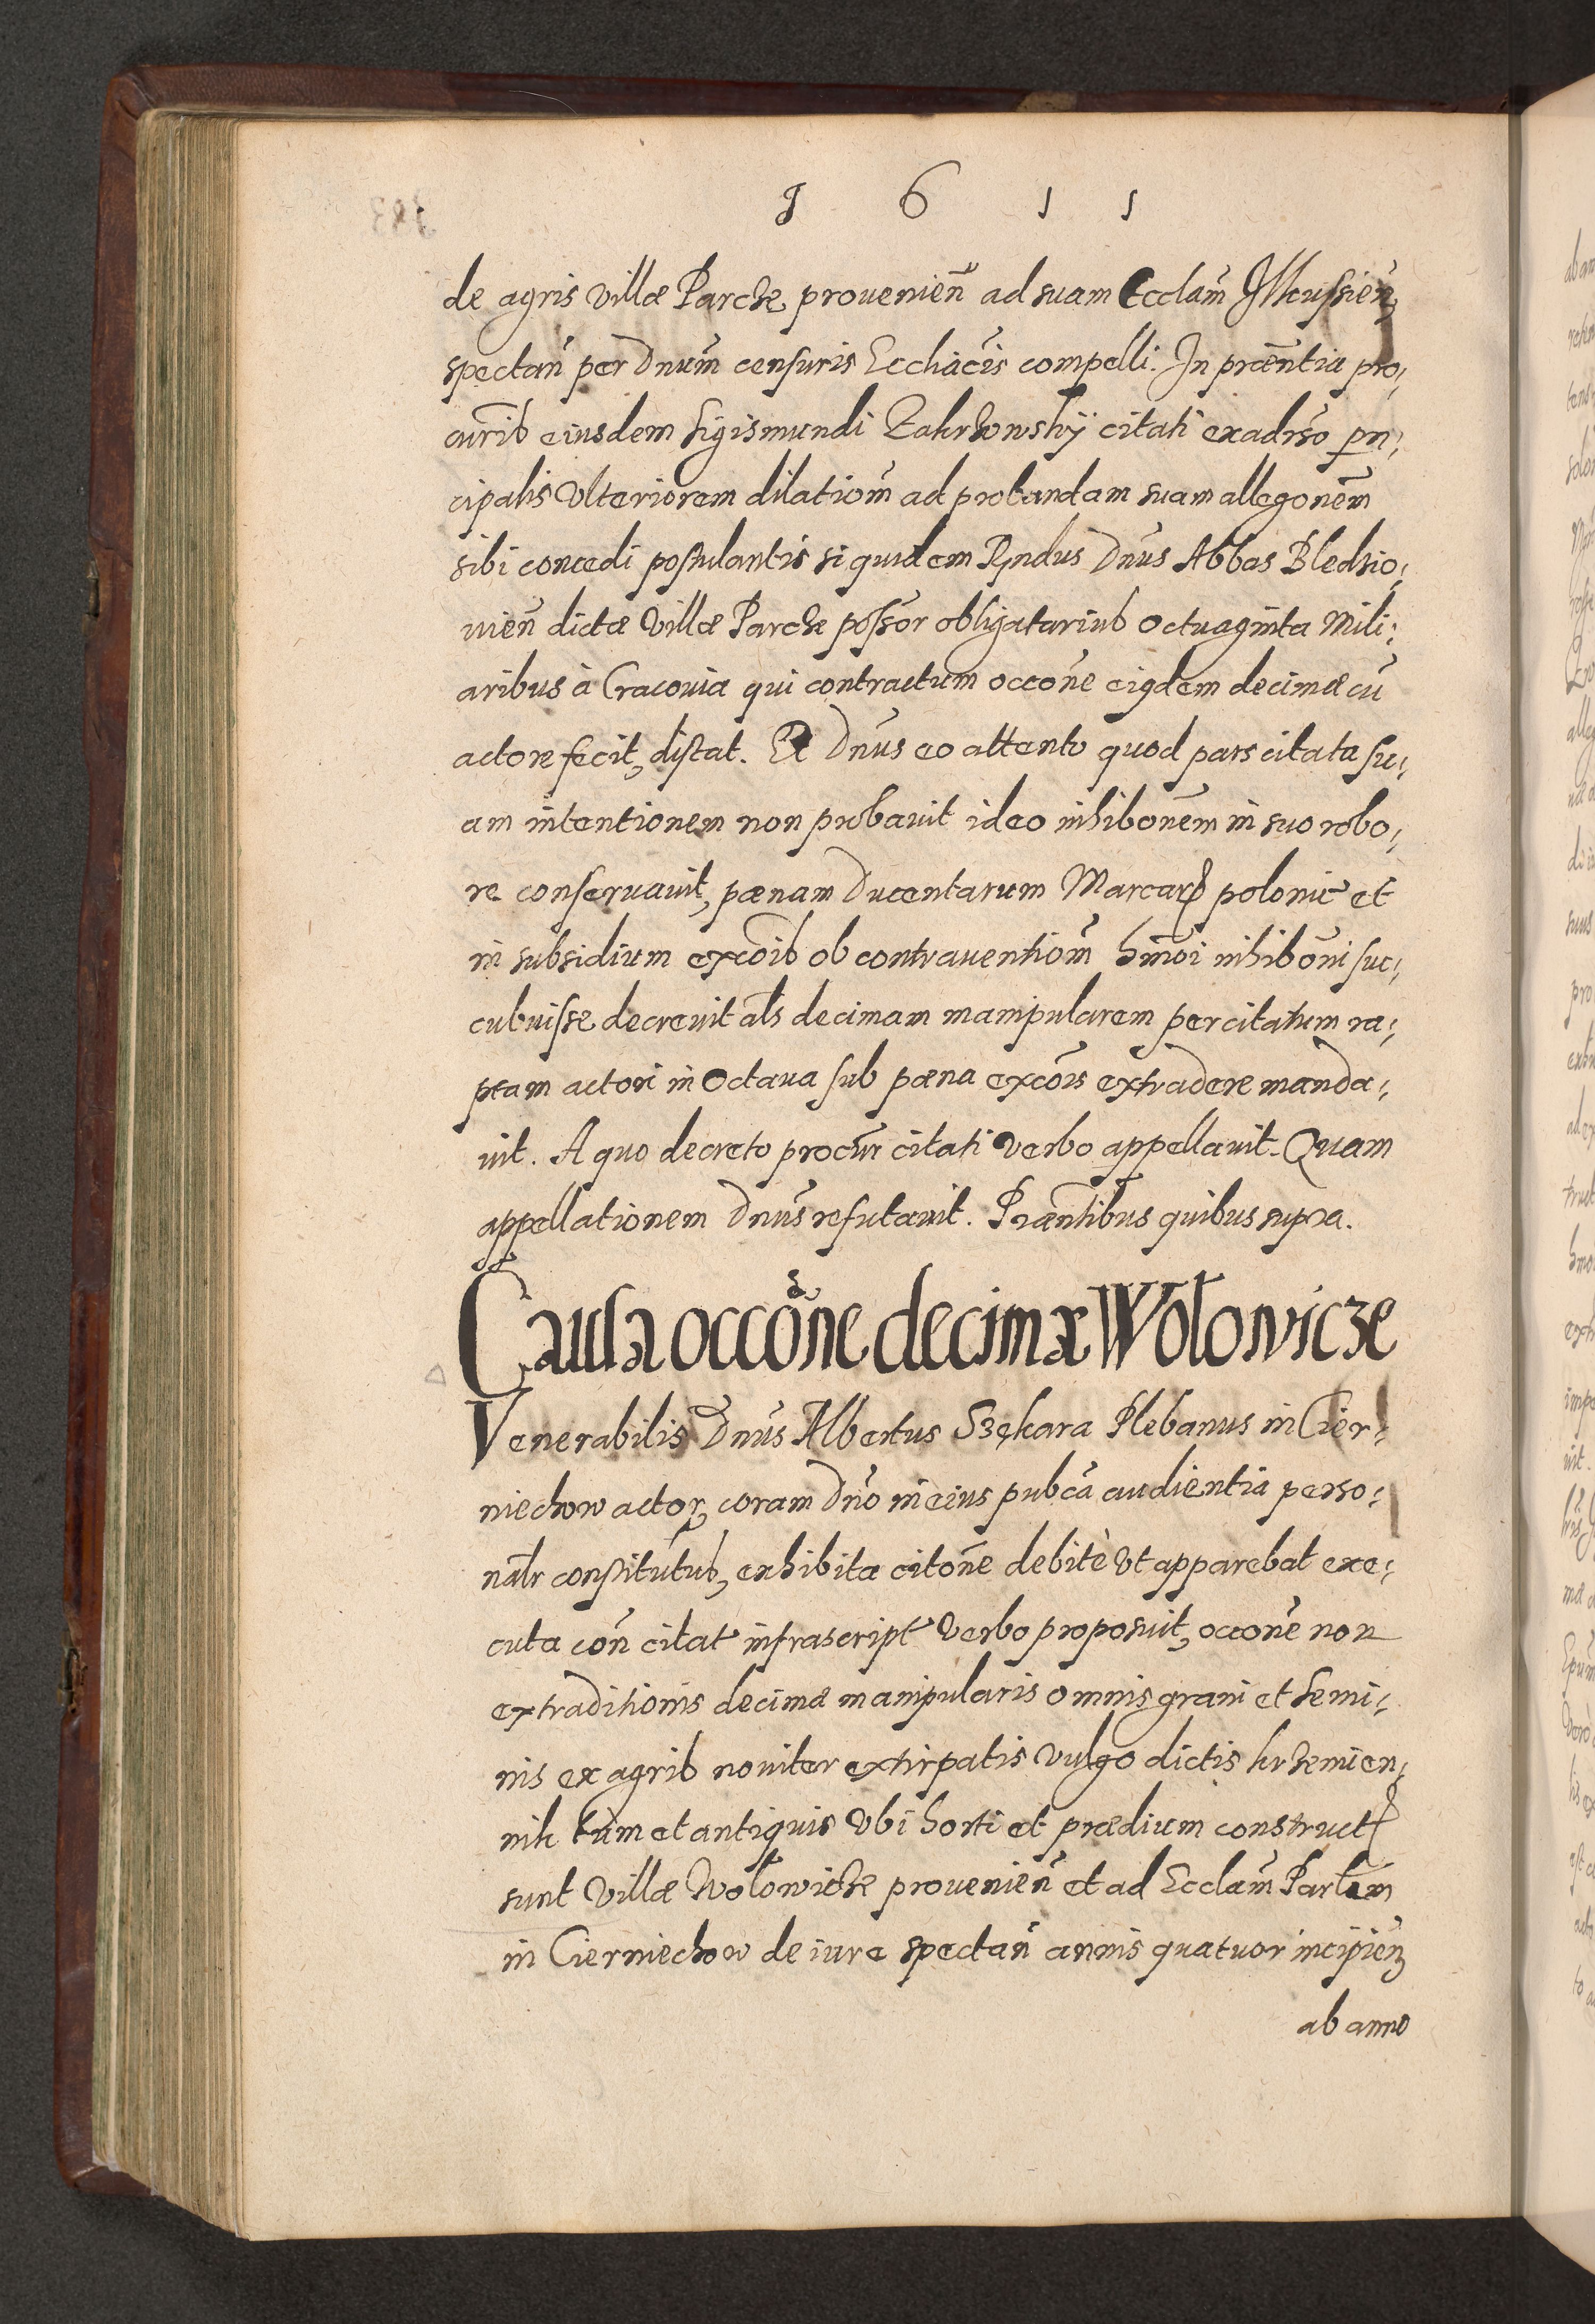 1 6 1 1
de agris villæ Parcze prouenien̄ ad suam Ecclam̄ Illkussien̄
spectan̄ per Dnum̄ censuris Eccliacis̄ compelli. In præn̄tia pro¡
curib eiusdem Sigismundi Zakrzowskÿ citati ex adrso prin¡
cipalis vlteriorem dilatiom̄ ad probandam suam allegonem̄
sibi concedi postulantis siquidem Rn̄dus Dnus Abbas Bledzio¡
uien̄ dictæ villæ Parcze possor̄ obligatarius octuaginta Mili¡
aribus à Cracouia qui contractum occone̅ eiqdem decimæ cū
actore fecit, distat. Et Dnus eo attento quod pars citata su¡
am intentionem non probauit ideo inhibonem̄ in suo robo¡
re conseruauit, pænam Ducentarum Marcar polonic et
in subsidium excoīb ob contrauentiom̄ hmoī inhibonī suc¡
cubuisse decreuit als decimam manipularem per citatum ra¡
ptam actori in Octaua sub pæna excoīs extradere manda¡
uit. A quo decreto procur̄ citati verbo appellauit. Quam
appellationem Dnus refutauit. Præntibus quibus supra.
Causa occone decimæ Wołowicze
Venerabilis Dnus Albertus Szękara Plebanus in Czier¡
niechow actor, coram Dno in eius pubca audientia perso¡
nalr constitutus, exhibita citone debitè vt apparebat exe¡
cuta con̄ citat infrascript verbo proposuit, occone non
extraditionis decimæ manipularis omnis grani et semi¡
nis ex agris nouiter extirpatis vulgo dictis krzemien¡
nik tum et antiquis vbi horti et prædium construct
sunt villæ Wołowicze prouenien̄ et ad Ecclam̄ Parlem̄
in Cierniechow de iure spectan̄ annis quatuor incipien̄
ab anno